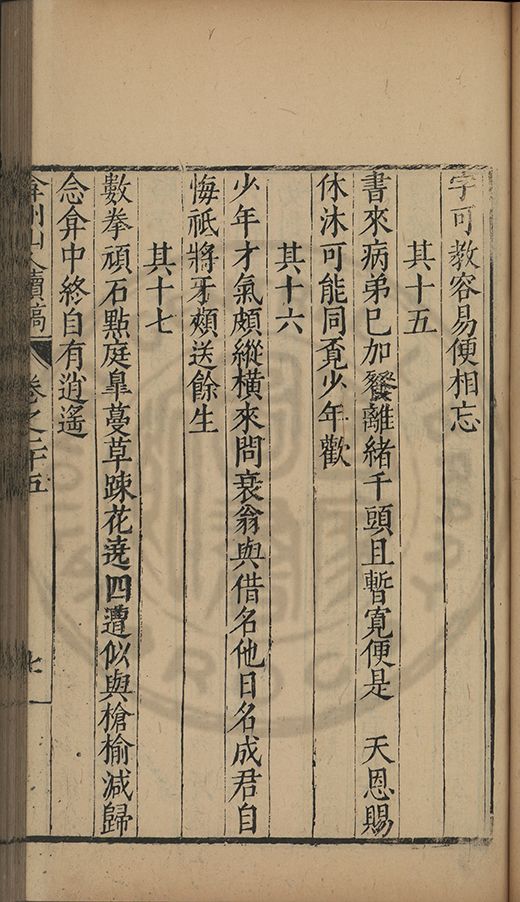 字可教容易便相忘
其十五
書來病弟已加餐離緒千頭且暫寬便是　天恩賜
休沐可能同覔少年歡
其十六
少年才氣頗縱橫來問衰翁與借名他日名成君自
悔祇將牙頰送餘生
其十七
數拳頑石點庭臯蔓草踈花遶四遭似與槍榆減歸
念弇中終自有逍遙
弇州山人續稿　卷之二十五　七